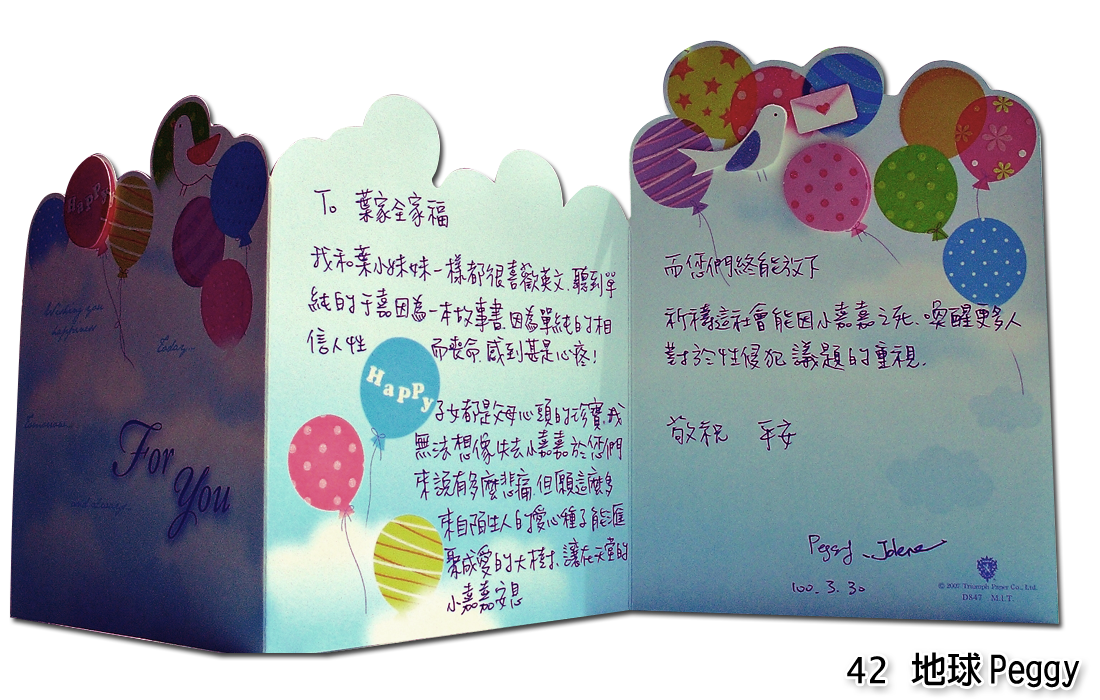 Happy
Wishing you
happiness
Today...
Tomorrow...
and always...
For
You
To 葉家全家福
我和葉小妹妹一樣都很喜歡英文,聽到單
純的于嘉因為一本故事書,因為單純的相
信人性 而喪命,感到甚是心疼!
Happy
子女都是父母心頭的珍寶,我
無法想像失去小嘉嘉於您們
來說有多麼悲痛,但願這麼多
來自陌生人的愛心種子能匯
聚成愛的大樹,讓在天堂的
小嘉嘉安息
而您們終能放下
祈禱這社會能因小嘉嘉之死,喚醒更多人
對於性侵犯議題的重視.
敬祝 平安
Peggy Jolene
100.3.30
© 2007 Triumph Paper Co., Ltd.
D847 M.I.T.
42 地球 Peggy